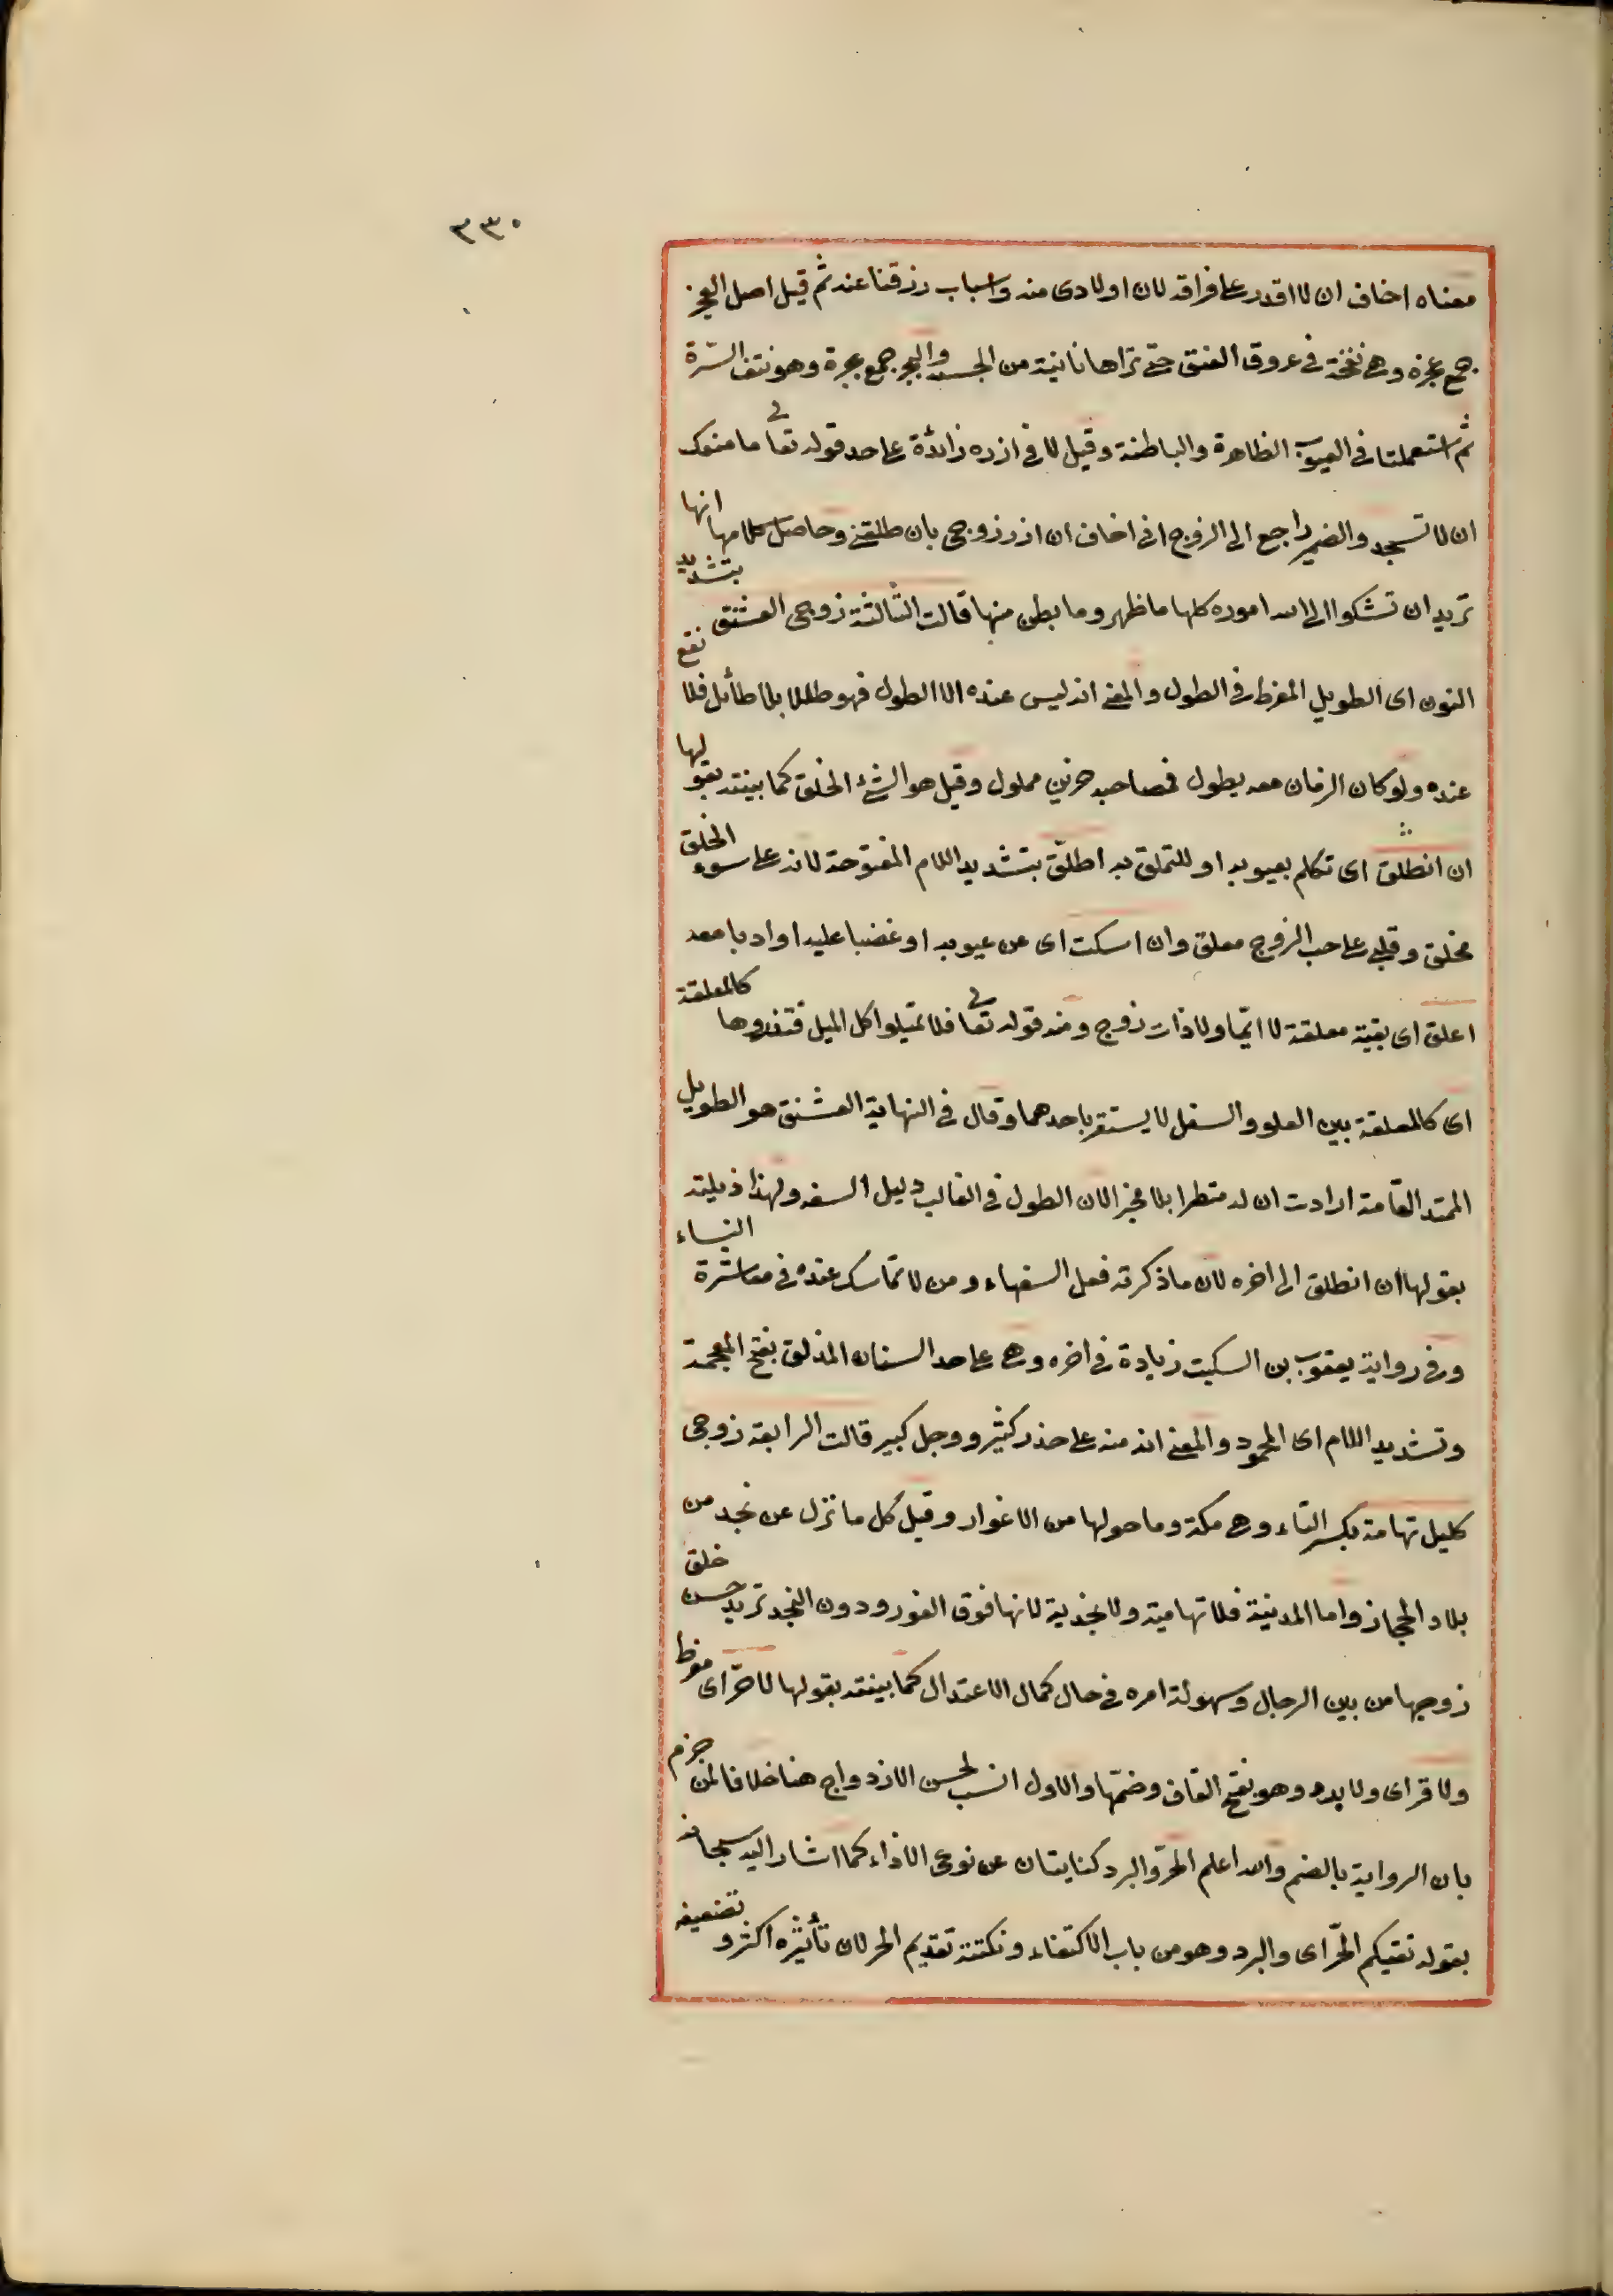 ٢٣٠
معناه اخاف ان لا اقدر على فراقه لان اولادى منه واسباب رزقنا عنده ثم قيل اصل العجر
جمع عجرة وهى نفخة فى عروق العنق حتى تراها ناتية من الجسد والبجر جمع بجرة وهو نتف السرة
ثم استعملتا فى العيوب الظاهرة والباطنة وقيل لا فى اذره زائدة على حد قوله تعالى ما منعك
ان لا تسجد والضمير راجع الى الزوج انى اخاف ان اذر زوجى بان طلقنى وحاصل كلامها انها
تريد ان تشكوا الى الله اموره كلها ما ظهر وما بطن منها قالت الثالثة زوجى العشنق بتشديد
النون اى الطويل المفرط فى الطول والمعنى انه ليس عنده الا الطول فهو طلل بلا طائل فلا نفع
عنده ولو كان الزمان معه يطول فصاحبه حزين مملول وقيل هو الشئ الخلق كما بينته بقولها
ان انطلق اى تكلم بعيوبه او للتملق به اطلّق بتشديد اللام المفتوحة لانه على سوء الخلق
مخلق وقلبى على حب الزوج معلق وان اسكت اى عن عيوبه او غضبا عليه او ادبا معه
اعلق اى بقيت معلقة لا ايّما ولا ذات زوج ومنه قوله تعالى فلا تميلوا كل الميل فتذروها كالمعلقة
اى كالمعلقة بين العلو والسفل لا يستقر باحدهما وقال فى النهاية العشنق هو الطويل
الممتد القامة ارادت ان له منظرا بلا مخبر لان الطول فى الغالب دليل السفه ولهذا ذيلته
بقولها ان انطلق الى اخره لان ما ذكرته فعل السفهاء ومن لا تماسك عنده فى معاشرة النساء
وفى رواية يعقوب بن السكيت زيادة فى اخره وهى على حد السنان المذلق بفتح المعجمة
وتشديد اللام اى المحدد والمعنى انه منه على حذر كثير ووجل كبير قالت الرابعة زوجى
كليل تهامة بكسر التاء وهى مكة وما حولها من الاغوار وقيل كل ما نزل عن نجد من
بلاد الحجاز واما المدينة فلا تهامية ولا نجدية لانها فوق الغور ودون النجد تريد حسن خلق
زوجها من بين الرجال وسهولة امره فى حال كمال الاعتدال كما بينته بقولها لا حرّ اى مفرط
ولا قر اى ولا برد وهو بفتح القاف وضمّها والاول انسب لحسن الازدواج هنا خلافا لمن جزم
بان الرواية بالضم والله اعلم الحرّ والبرد كنايتان عن نوعى الاذاء كما اشار اليه سبحانه
بقوله تقيكم الحرّ اى والبرد وهو من باب الاكتفاء ونكتة تقديم الحر لان تأثيره اكثر وتضعيفه